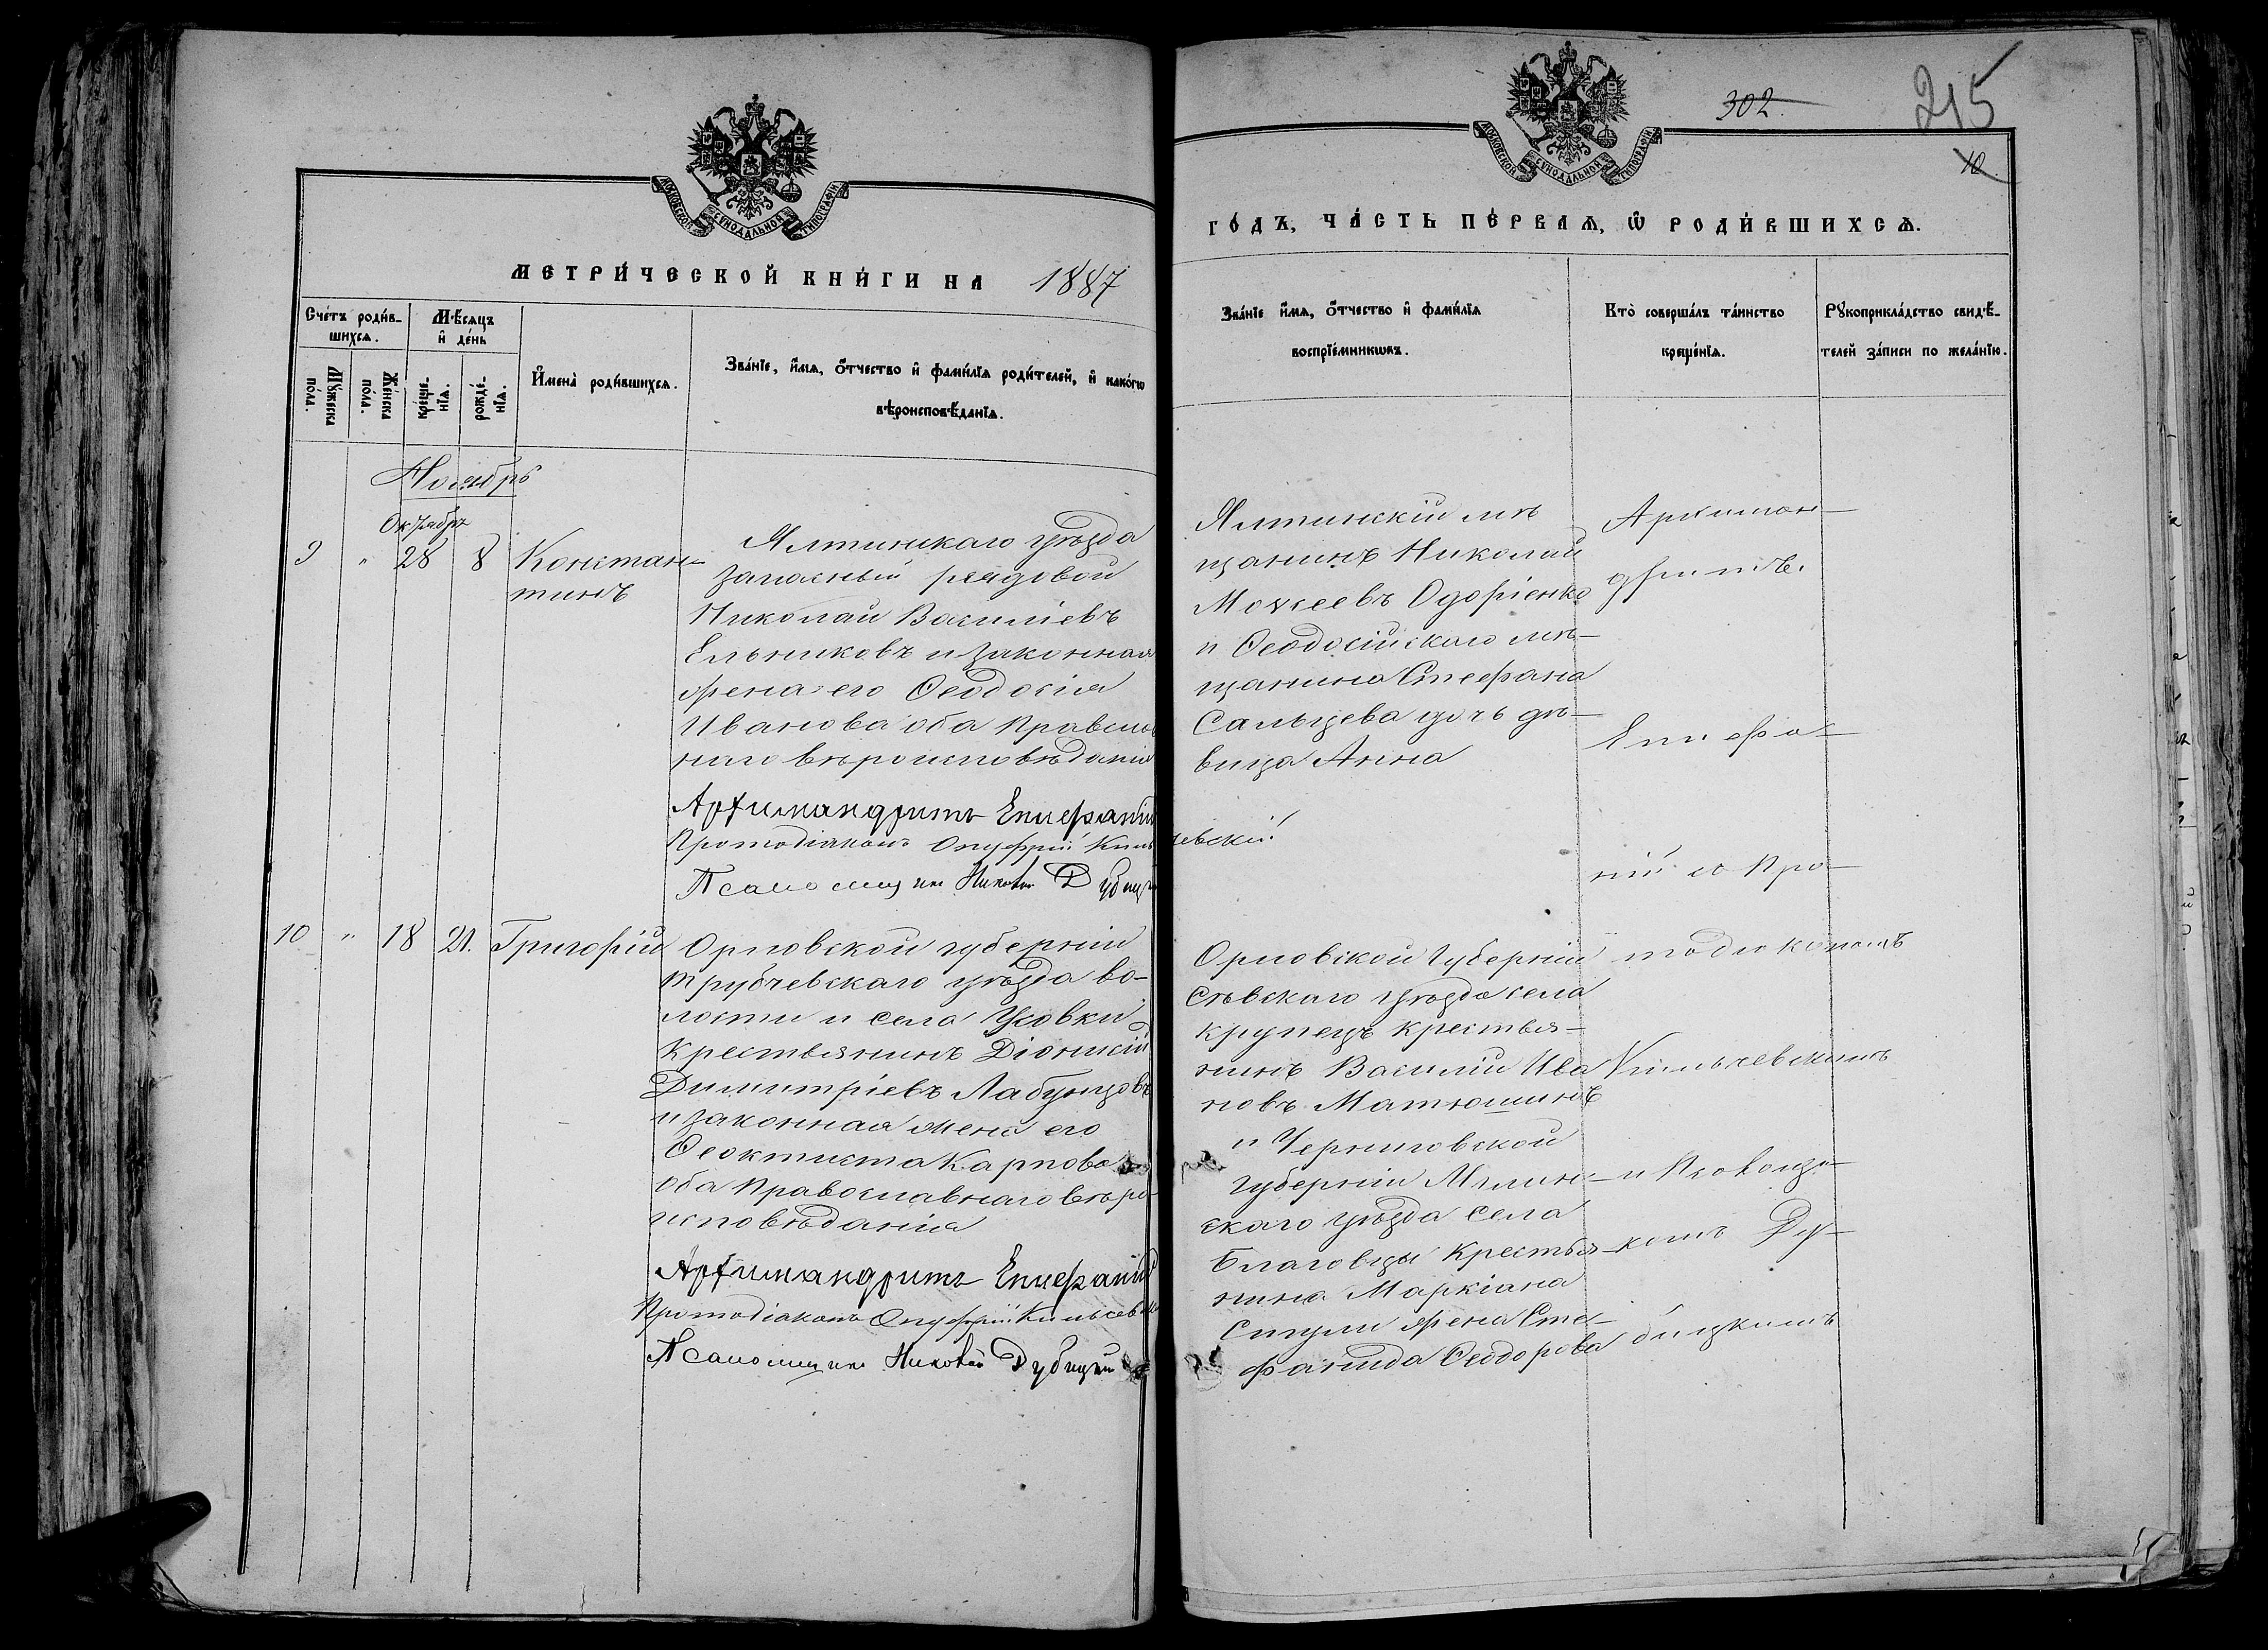 МОСКОВСКОЙ СѴНОДАЛЬНОЙ ТИПОГРАФІИ
МЕТРИ́ЧЕСКОЙ КНИ́ГИ НА 1887
Сче́тъ роди́в-
шихсѧ.
Мѣсѧцъ
и де́нь
Мꙋжеска
по́ла.
Же́нска
по́ла.
креще́-
нїѧ.
рожде́-
нїѧ.
Имена̀ роди́вшихсѧ.
Зва́нїе, и́мѧ, о́тчество и фами́лїѧ роди́телей, и како́гѡ
вѣроисповѣ́данїѧ.
Ноябрь
Октябрь
9 " 28 8 Констан-
тинъ
Ялтинскаго уѣзда
запасный рядовой
Николай Василіевъ
Ельниковъ и законная
жена его Ѳеодосія
Иванова оба Православ
наго вѣроисповѣданія
Архимандритъ Епифаній
Протодіаконъ Онуфрій Кильчевскій
Псаломщикъ Николай Дубицк
10 " 18 21. Григорій
Орловской губерніи
Трубчевскаго уѣзда во-
лости и села
Крестьянинъ Діонисій
Димитріевъ Лабунцовъ
и законная жена его
Ѳеоктиста Карпова
оба Православнаго вѣро-
исповѣданія
Архимандритъ Епифаній
Протодіаконъ Онуфрій Кильчевск
Псаломщикъ Николай Дубицкій
302.
215
10
МОСКОВСКОЙ СѴНОДАЛЬНОЙ ТИПОГРАФІИ
ГО́ДЪ, ЧА́СТЬ ПЕ́РВАѦ, Ѡ҆ РОДИ́ВШИХСѦ.
Зва́нїе и́мѧ, о́тчество и фами́лїѧ
воспрїе́мникѡвъ.
Кто̀ соверша́лъ та́инство
креще́нїѧ.
Рꙋкоприкла́дство свидѣ́-
телей за́писи по жела́нїю.
Ялтинскій мѣ
щанинъ Николай
Моѵсеевъ
и Ѳеодосійскаго мѣ-
щанина Стефана
Сальцева дочь дѣ-
вица Анна
Орловской Губерніи
Сѣвскаго уѣзда села
Крупецъ крестья-
нинъ Василій Ива
новъ Матюшинъ
и Черниговской
губерніи Мглин-
скаго уѣзда села
крестья-
нина Маркіана
жена Сте-
фанида Ѳеодорова
Архиман-
дритъ
Епифа-
ній съ Про-
тодіакономъ
Кильчевскимъ
и Псаломщи-
комъ Ду-
бицкимъ